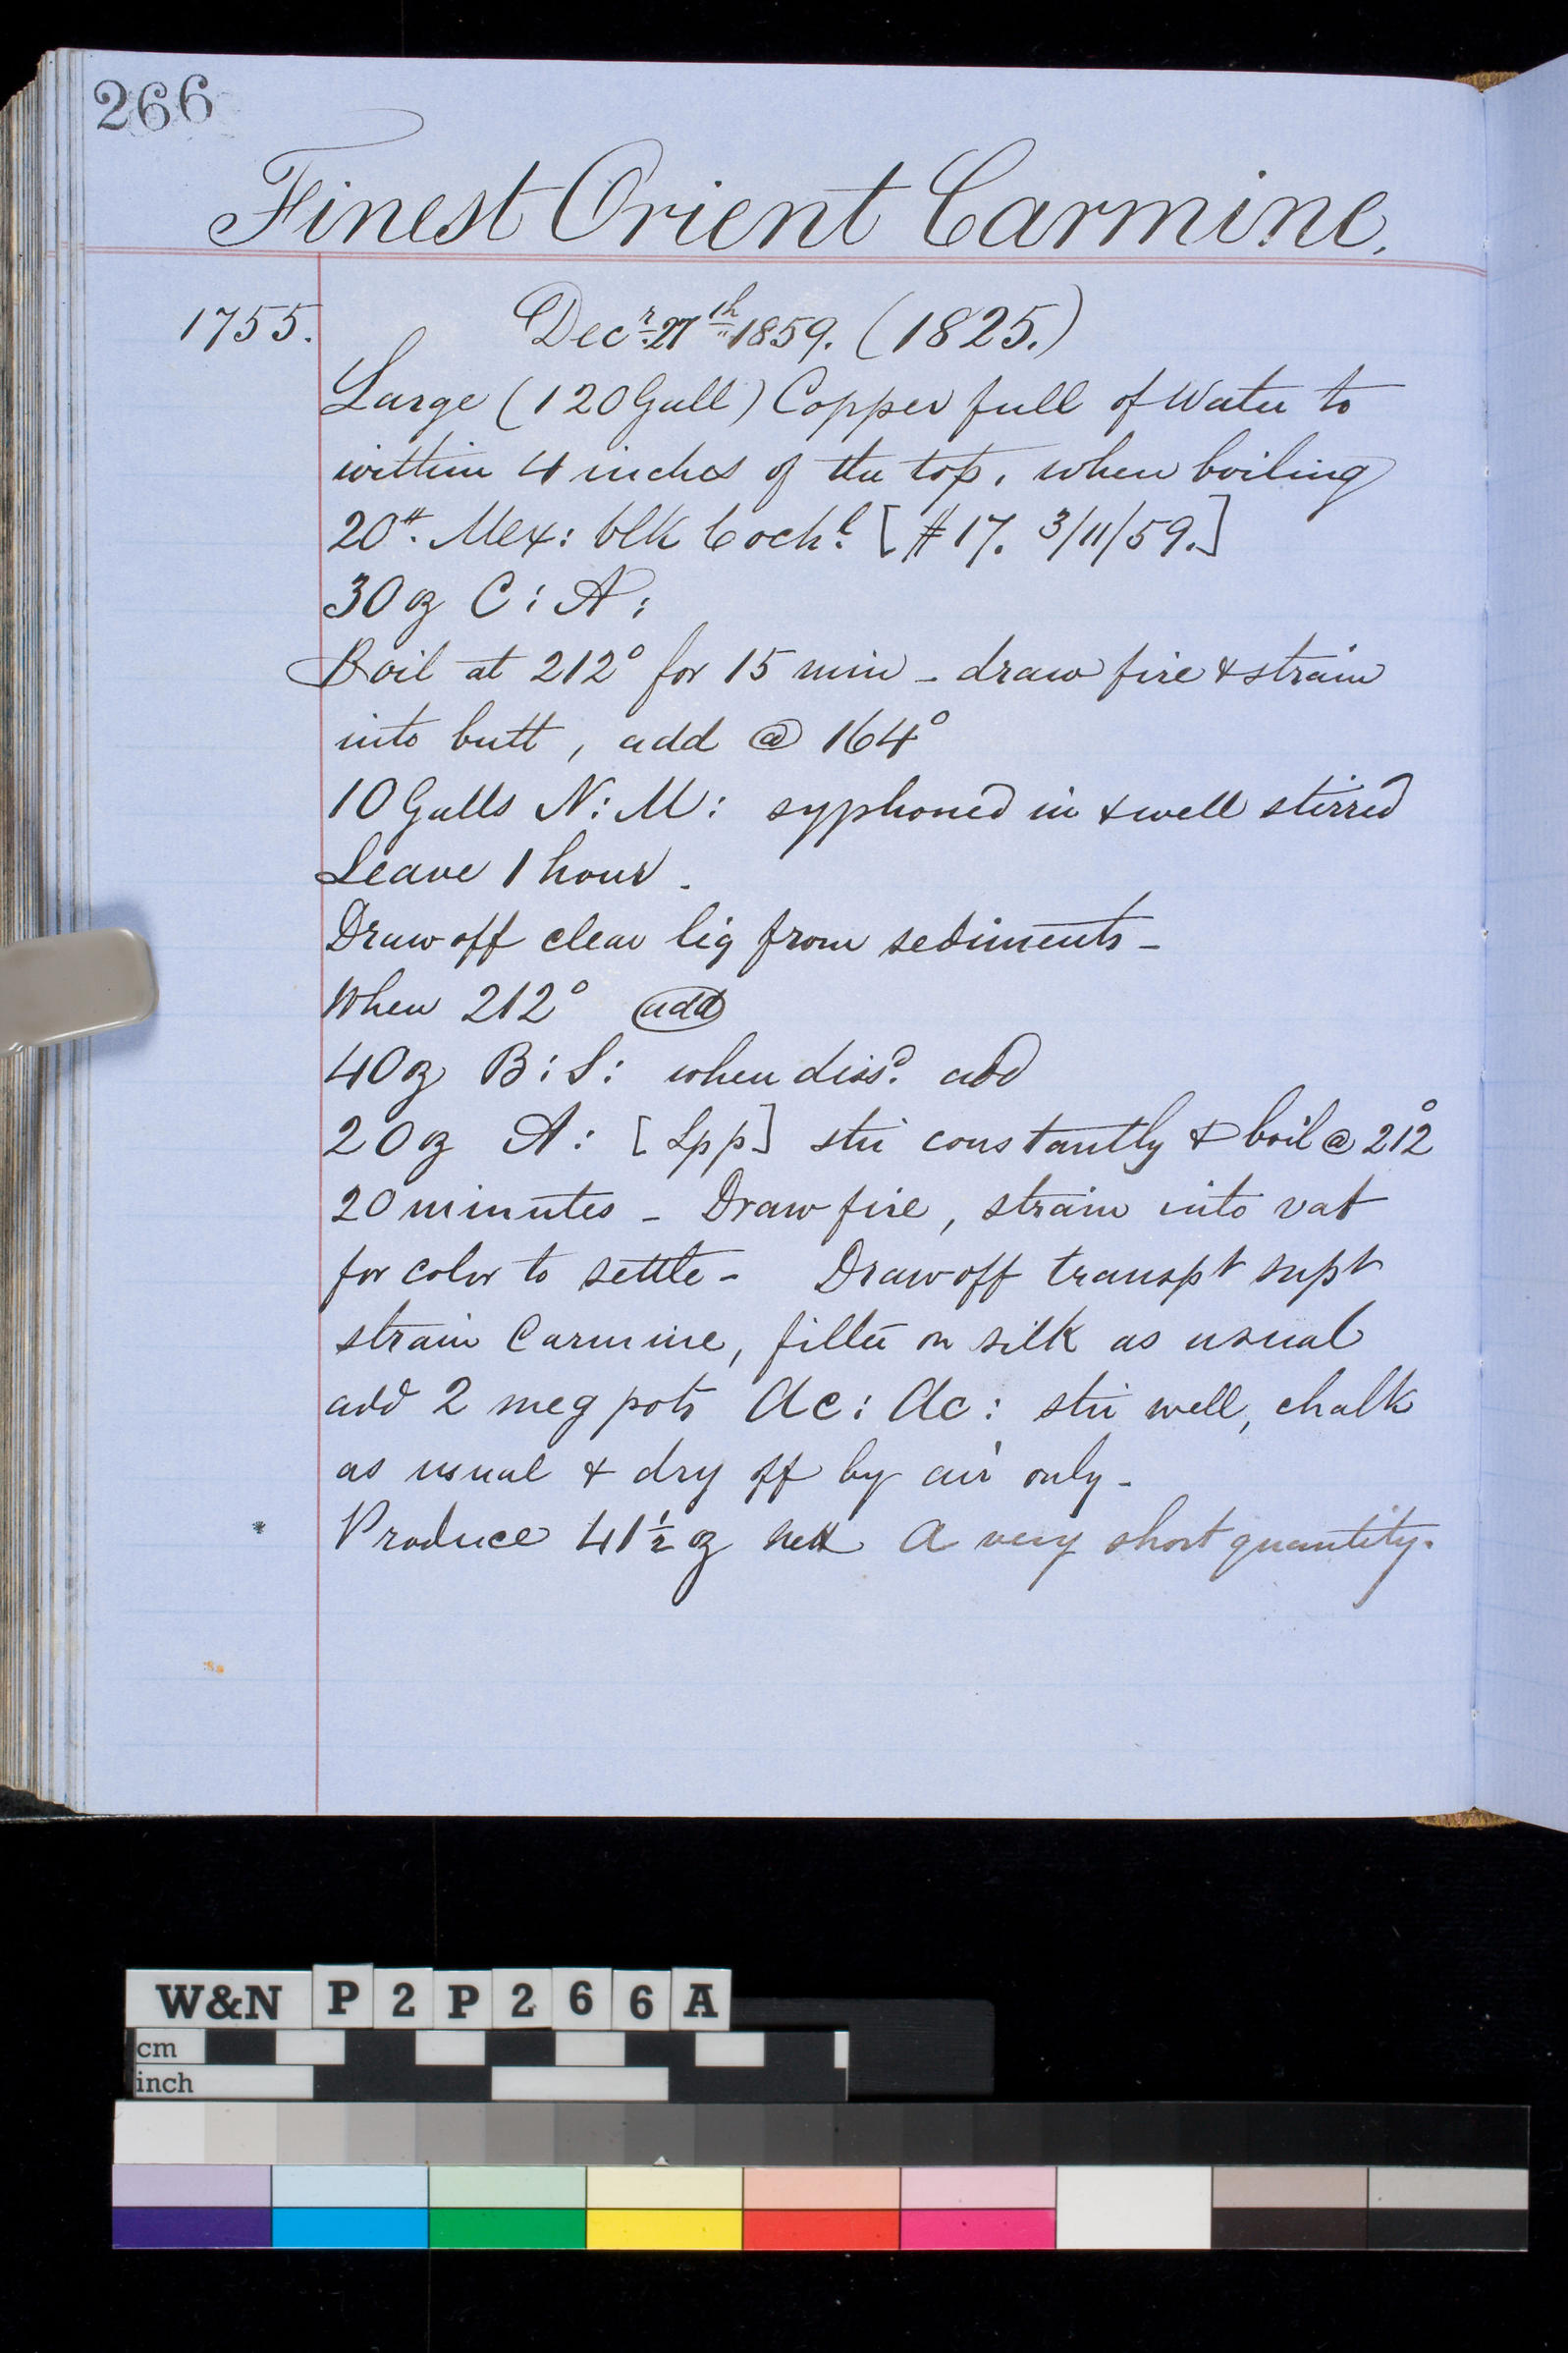 266
Finest Orient Carmine.
1755. Decr. 27th 1859. (1825.)
Large (120 Gall) Copper full of Water to
within 4 inches of the top, when boiling
20#. Mex: blk Cochl. [#17. 3/11/59.]
30 oz C: A:
Boil at 212° for 15 min - draw fire & strain
into butt, add @ 164°
10 Galls N: M: syphoned in & well stirred
Leave 1 hour.
Draw off clear liq from sediments -
When 212° add
40 oz B: S: when dissd. add
20 oz A: [Lpp] stir constantly & boil @ 212°
20 minutes - Draw fire, strain into vat
for color to settle - Draw off transpt supt
strain Carmine, filter on silk as usual
add 2 meg pots Ac: Ac: stir well, chalk
as usual & dry off by air only -
* Produce 41½ oz nett A very short quantity.
W&N P2P266A
cm
inch